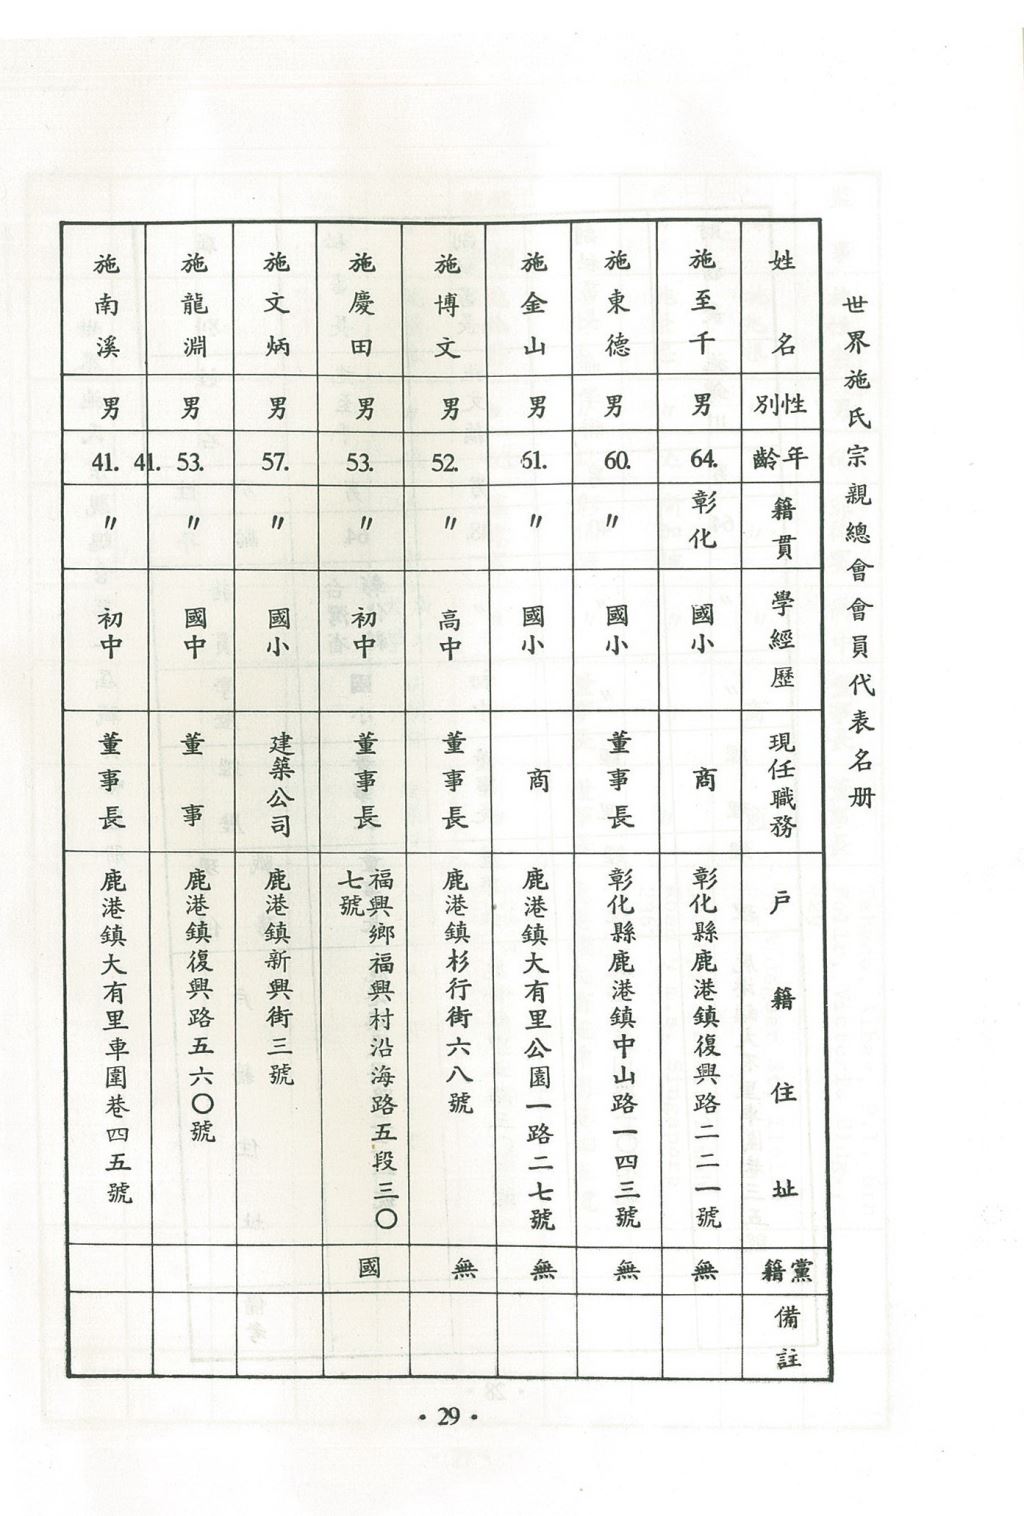 世界施氏宗親總會會員代表名册
姓名 性別 年齡 籍貫 學經歷 現任職務 戶籍住址 黨籍 備註
施至千 男 64. 彰化 國小 商 彰化縣鹿港鎮復興路二二一號 無
施東德 男 60. 〃 國小 董事長 彰化縣鹿港鎮中山路一四三號 無
施金山 男 61. 〃 國小 商 鹿港鎮大有里公園一路二七號 無
施博文 男 52. 〃 高中 董事長 鹿港鎮杉行街六八號 無
施慶田 男 53. 〃 初中 董事長 福興鄉福興村沿海路五段三〇
七號 國
施文炳 男 57. 〃 國小 建築公司 鹿港鎮新興街三號
施龍淵 男 53. 〃 國中 董事 鹿港鎮復興路五六〇號
施南溪 男 41. 41. 〃 初中 董事長 鹿港鎮大有里車圍巷四五號
·29·